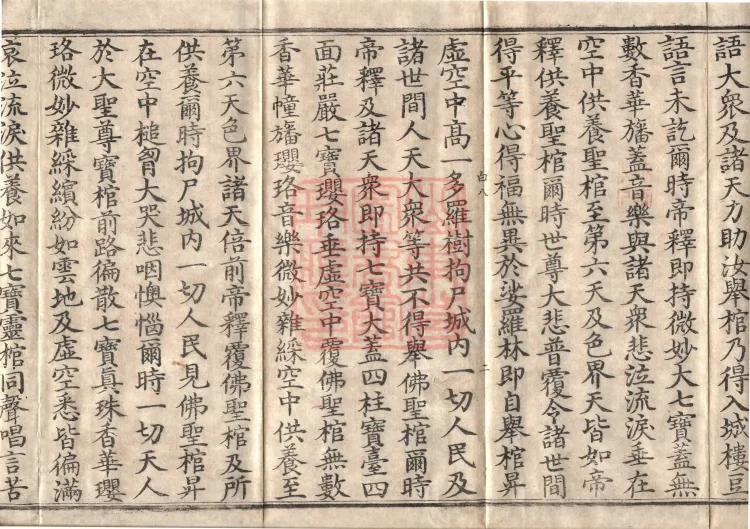 語大衆及諸天方助汝舉棺乃得入城樓豆
語言未訖爾時帝釋即持微妙大七寶蓋無
數香華旛蓋音樂與諸天衆悲泣流淚垂在
空中供養聖棺至第六天及色界天皆如帝
釋供養聖棺爾時世尊大悲普覆令諸世間
得平等心得福無異於娑羅林即自舉棺昇
白八
二
虛空中高一多羅樹拘尸城内一切人民及
諸世間人天大衆等共不得舉佛聖棺爾時
帝釋及諸天衆即持七寶大蓋四柱寶臺四
面莊嚴七寶瓔珞垂虛空中覆佛聖棺無數
香華幢旛瓔珞音樂微妙雜綵空中供養至
第六天色界諸天倍前帝釋覆佛聖棺及所
供養爾時拘尸城内一切人民見佛聖棺昇
在空中槌胷大哭悲咽懊惱爾時一切天人
於大聖尊寶棺前路徧散七寶真珠香華瓔
珞微妙雜綵繽紛如雲地及虛空悉皆徧滿
哀泣流淚供養如來七寶靈棺同聲唱言苦